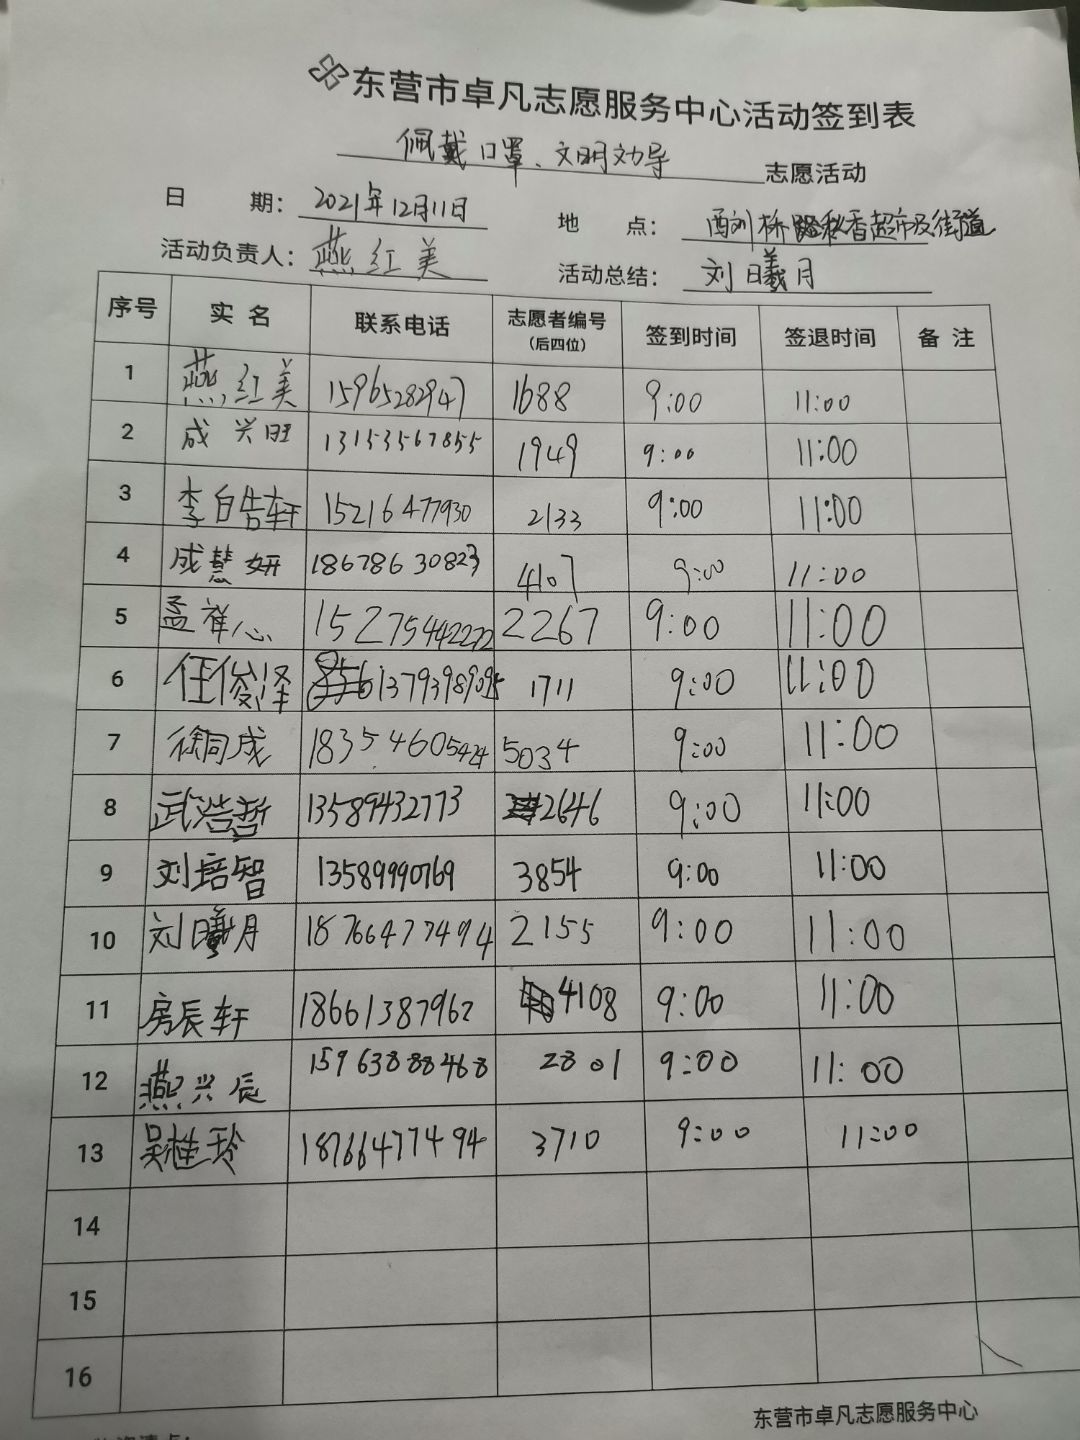 东营市卓凡志愿服务中心活动签到表
佩戴口罩、文明劝导 志愿活动
日 期: 2021年12月11日 地 点: 酉刘桥 秋香超市及街道
活动负责人: 燕红美 活动总结: 刘曦月
序号 实名 联系电话 志愿者编号 (后四位) 签到时间 签退时间 备注
1 燕红美 15965282947 1688 9:00 11:00
2 成兴旺 13153567855 1949 9:00 11:00
3 李皓轩 15216477930 2133 9:00 11:00
4 成慧妍 18678630823 4107 9:00 11:00
5 孟祥心 15275442272 2267 9:00 11:00
6 任俊泽 13793989095 1711 9:00 11:00
7 徐同成 18354605424 5034 9:00 11:00
8 武浩哲 13589432773 2646 9:00 11:00
9 刘培智 13589990769 3854 9:00 11:00
10 刘曦月 18766477494 2155 9:00 11:00
11 房辰轩 18661387962 4108 9:00 11:00
12 燕兴辰 15963888468 2801 9:00 11:00
13 吴桂玲 18766477494 3710 9:00 11:00
14
15
16
东营市卓凡志愿服务中心